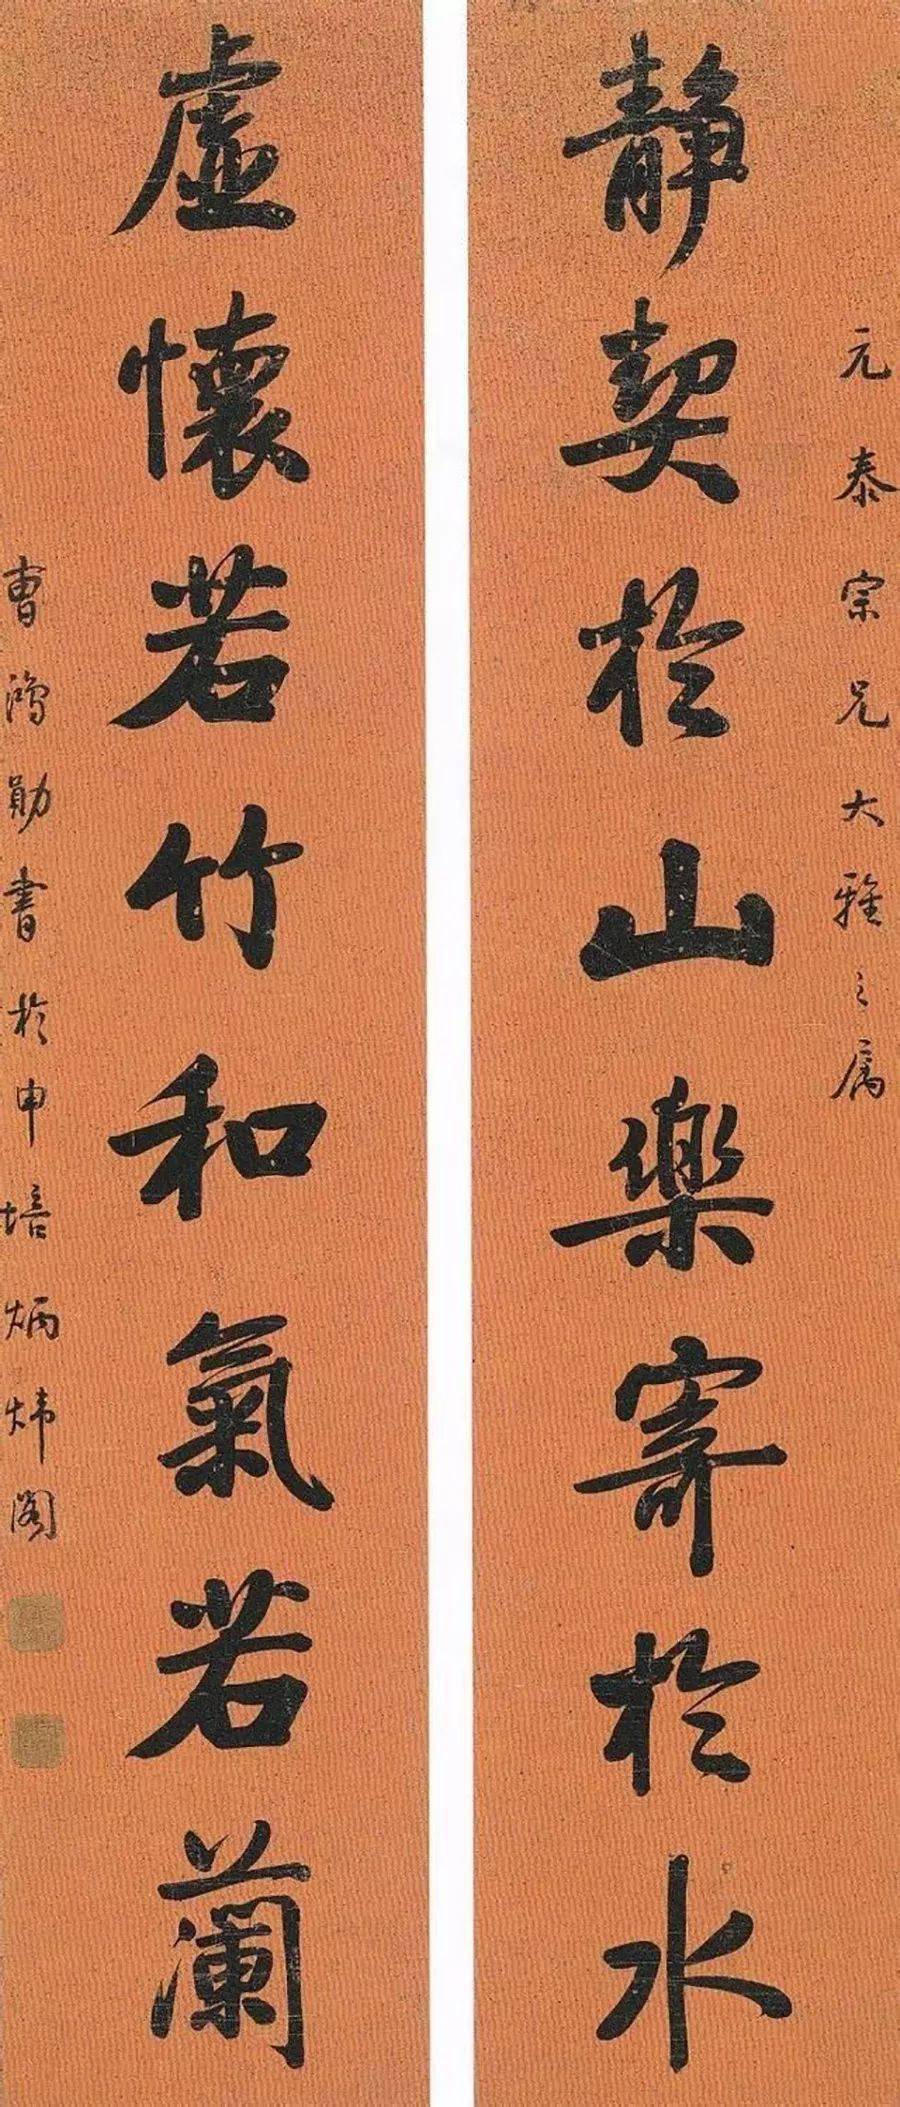 元泰宗兄大雅之属
静契於山樂寄於水
虛懷若竹和氣若蘭
曹鴻勛書於申培炳煒閣